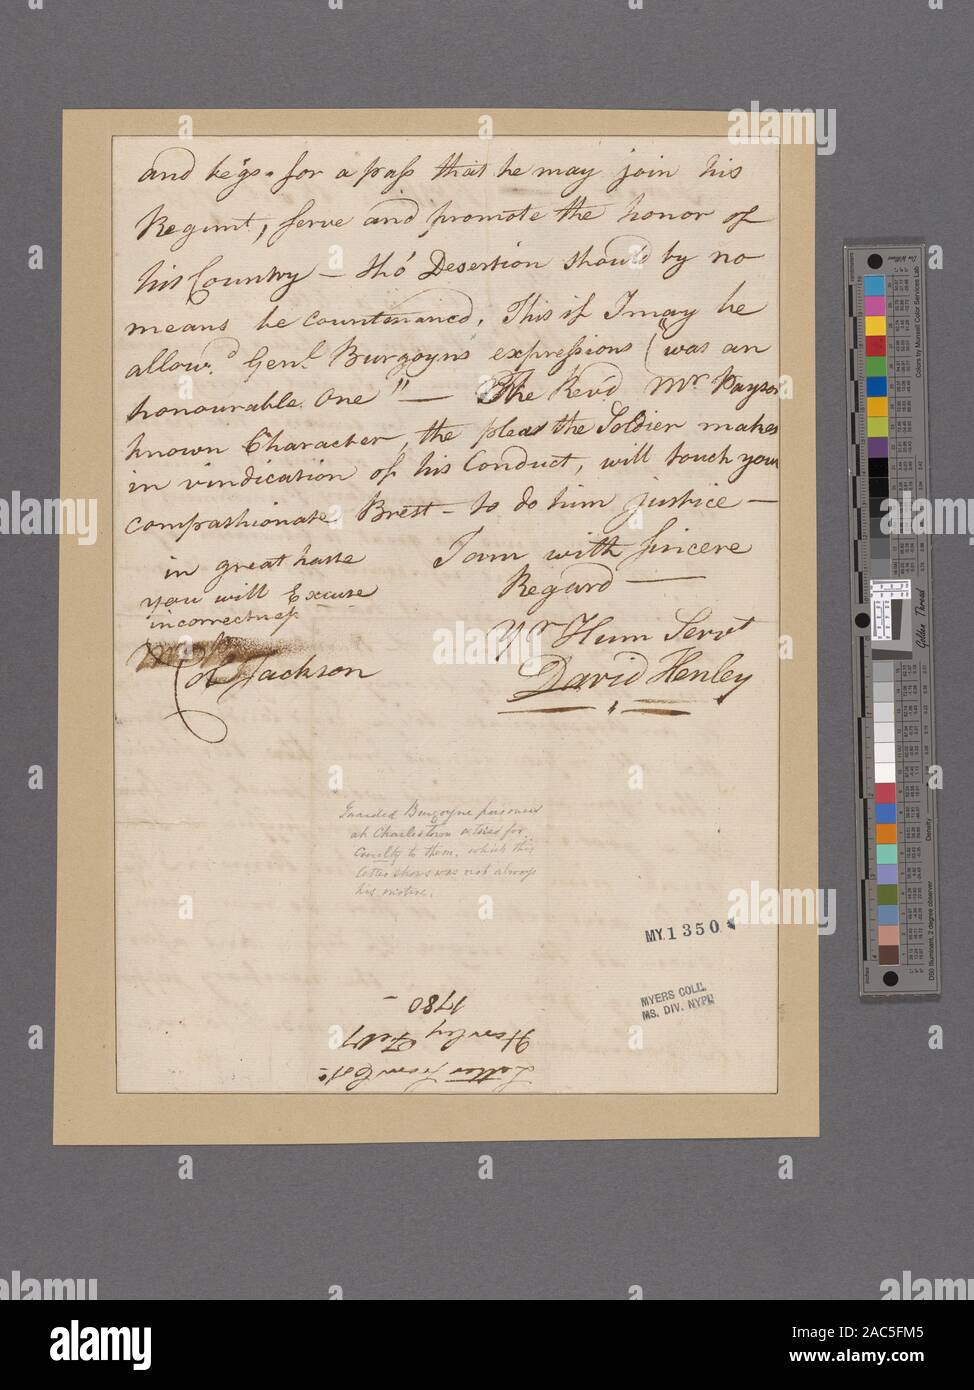 and begs for a pass that he may join his
Regimt, serve and promote the honor of
his Country — tho' Desertion should by no
means be countenanced. This if I may be
allow.d Genl. Burgoyns expressions (was an
honourable One" — The Revd Mr Payson
known Character, the pleas the Soldier makes
in vindication of his Conduct, will touch your
compashionate Brest — to do him justice —
I am with sincere
Regard —
in great haste
you will Excuse
incorrectness
Yr Hum Servt
David Henley
Col Jackson
Guarded Burgoyne prisoners
at Charlestown & tried for
Cruelty to them. which this
letter shows was not always
his motive.
MY.1350
MYERS COLL.
MS. DIV. NYPL
Letter from Colo
Henley Feby
1780
alamy
Image ID: 2AC5FM5
www.alamy.com